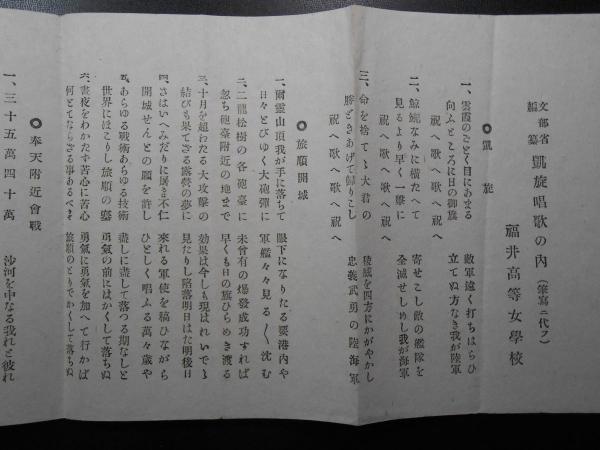 文部省編纂 凱旋唱歌の内 (筆寫ニ代フ)
福井高等女學校
◎凱旋
一、雲霞のごとく目にあまる 敵軍遠く打ちはらひ
向ふところに日の御旗 立てぬ方なき我が陸軍
祝へ歌へ歌へ祝へ
二、鯨鯢なみに横たへて 寄せこし敵の艦隊を
見るより早く一擧に 全滅せしめし我が海軍
祝へ歌へ歌へ祝へ
三、命を捨てゝ大君の 稜威を四方にかがやかし
勝どきあげて歸りこし 忠義武勇の陸海軍
祝へ歌へ歌へ祝へ
◎旅順開城
一、爾靈山頂我が手に落ちて 眼下になりたる要港内や
日々とびゆく大砲彈に 軍艦々々見る〱沈む
二、二龍松樹の各砲臺に 未曾有の爆發成功すれば
忽ち砲臺附近の地まで 早くも日の旗ひらめき渡る
三、十月を超わたる大攻擊の 効果は今しも現はれいでゝ
結びも果てざる露營の夢に 見たりし陷落明日はた明後日
四、さはいへみだりに屠るも不仁 來れる軍使を犒ひながら
開城せんとの願を許し ひとしく唱ふる萬々歲や
五、あらゆる戰術あらゆる技術 盡しに盡して落つる期なしと
世界にほこりし旅順の塞 勇氣の前にはかくして落ちぬ
六、晝夜をわかたず苦心に苦心 勇氣に勇氣を加へて行かば
何とてならざる事あるべき 旅順のとりでかくして落ちぬ
◎奉天附近會戰
一、三十五萬四十萬 沙河を中なる我れと彼れ